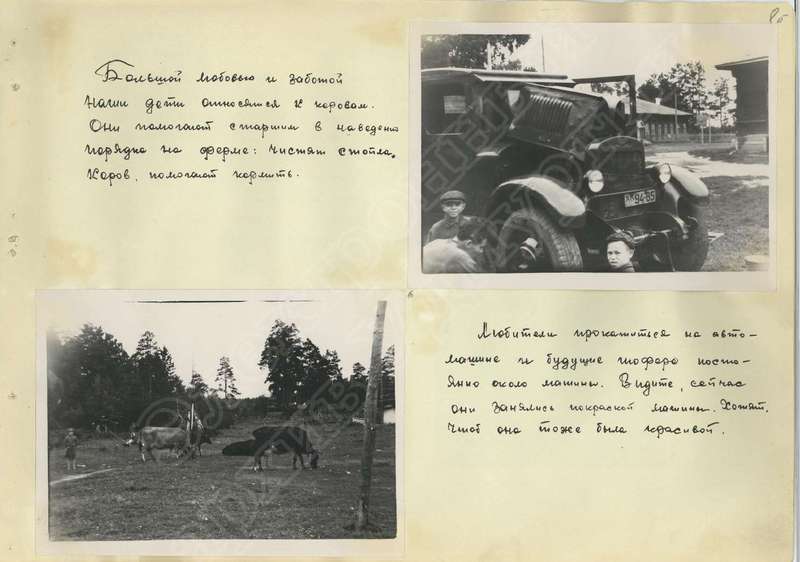 85
Большой любовью и заботой
наши дети относятся к коровам.
Они помогают старшим в наведении
порядка на ферме: чистят стойла,
Коров, помогают кормить.
94-85
Любители прокатиться на авто-
машине и будущие шофера посто-
янно около машины. Видите, сейчас
они занялись покраской машины. Хотят,
чтоб она тоже была красивой.